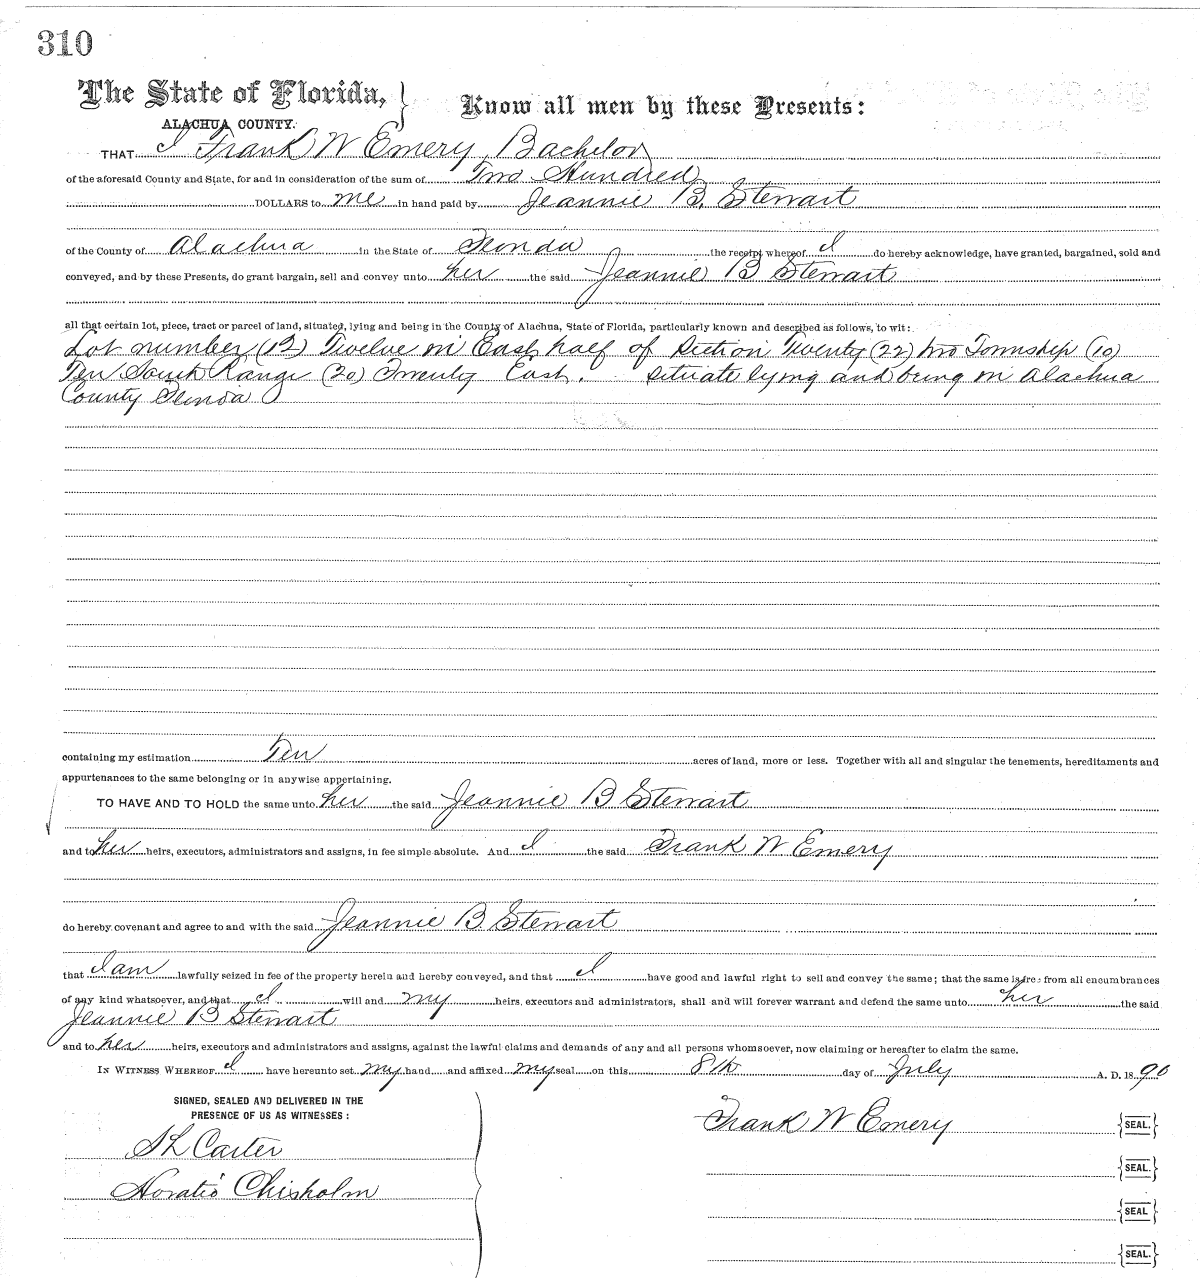 310
The State of Florida, } Know all men by these Presents:
ALACHUA COUNTY.
THAT I Frank W Emery, Bachelor
of the aforesaid County and State, for and in consideration of the sum of Two Hundred
DOLLARS to me in hand paid by Jeannie B. Stewart
of the County of Alachua in the State of Florida the receipt whereof I do hereby acknowledge, have granted, bargained, sold and
conveyed, and by these Presents, do grant bargain, sell and convey unto her the said Jeannie B Stewart
all that certain lot, piece, tract or parcel of land, situated, lying and being in the County of Alachua, State of Florida, particularly known and described as follows, to wit:
Lot number (12) Twelve in East half of Section Twenty (22) two Township (10)
Ten South Range (20) Twenty East. Situate lying and being in Alachua
County Florida
containing my estimation Ten acres of land, more or less. Together with all and singular the tenements, hereditaments and
appurtenances to the same belonging or in anywise appertaining.
TO HAVE AND TO HOLD the same unto her the said Jeannie B Stewart
and to her heirs, executors, administrators and assigns, in fee simple absolute. And I the said Frank W Emery
do hereby covenant and agree to and with the said Jeannie B Stewart
that I am lawfully seized in fee of the property herein and hereby conveyed, and that I have good and lawful right to sell and convey the same; that the same is free from all encumbrances
of any kind whatsoever, and that I will and my heirs, executors and administrators, shall and will forever warrant and defend the same unto her the said
Jeannie B Stewart
and to her heirs, executors and administrators and assigns, against the lawful claims and demands of any and all persons whomsoever, now claiming or hereafter to claim the same.
IN WITNESS WHEREOF I have hereunto set my hand and affixed my seal on this 8th day of July A. D. 1890
SIGNED, SEALED AND DELIVERED IN THE
PRESENCE OF US AS WITNESSES:
S L Carter
Horatio Chisholm
Frank W Emery {SEAL.}
{SEAL.}
{SEAL}
{SEAL.}